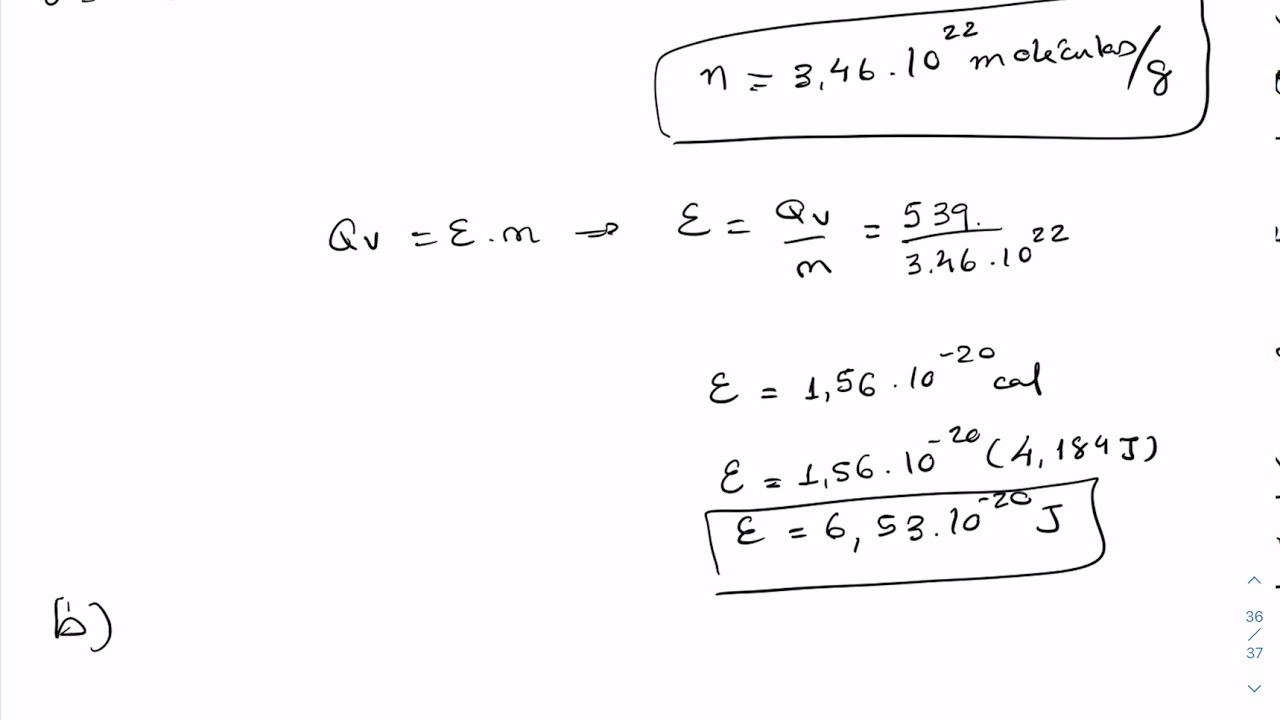 n = 3,46 . 10^22 moléculas/g
Qv = ε . n ⇒ ε = Qv/n = 539./3.46 . 10^22
ε = 1,56 . 10^-20 cal
ε = 1,56 . 10^-20 (4,184 J)
ε = 6,53 . 10^-20 J
b)
36
/
37